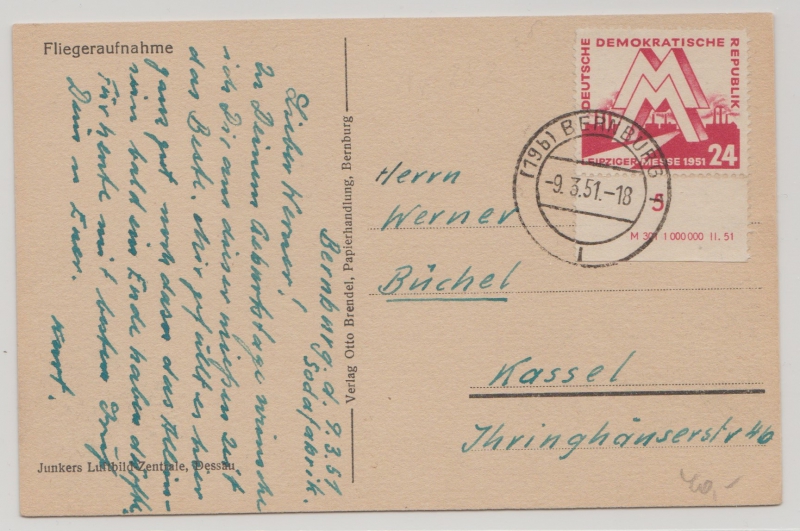 Fliegeraufnahme
Bernburg, d. 9.3.51
Sodafabrik.
Lieber Werner!
Zu Deinem Geburtstage wünsche
ich Dir aus dieser Zeit
das Beste. Mir gefällt es hier
ganz gut noch dazu das Allein-
sein bald ein Ende haben dürfte.
Für heute mit besten Grüß
Dein u Euer
Kurt.
Junkers Luftbild-Zentrale, Dessau
Verlag Otto Brendel, Papierhandlung, Bernburg
DEUTSCHE DEMOKRATISCHE REPUBLIK
MM
LEIPZIGER MESSE 1951 24
5
M 301 1 000 000 11. 51
(19b) BERNBURG
-9. 3.51.-18
Herrn
Werner
Büchel
Kassel
Ihringshäuserstr 46
40,-